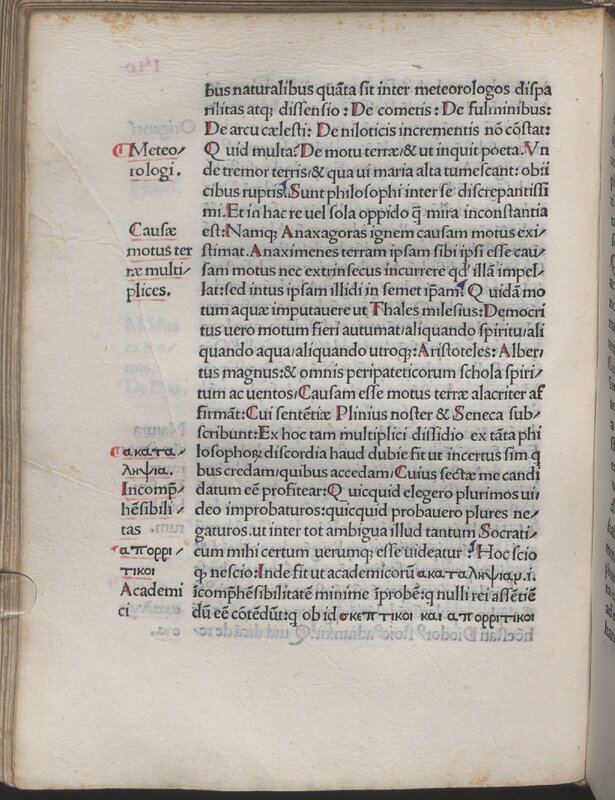 bus naturalibus quãta sit inter meteorologos dispa
rilitas atqꝫ dissensio : De cometis: De fulminibus:
De arcu cælesti: De niloticis incrementis nõ cõstat:
Quid multa? De motu terræ/& ut inquit poeta. Vn
de tremor terris/& qua ui maria alta tumescant: obii
cibus ruptis? Sunt philosophi inter se discrepantissi
mi. Et in hac re uel sola oppido q̃ mira inconstantia
est: Namqꝫ Anaxagoras ignem causam motus exi/
stimat. Anaximenes terram ipsam sibi ipsi esse cau/
sam motus nec extrinsecus incurrere qd' illã impel/
lat: sed intus ipsam illidi in semet ip̃am. Quidã mo
tum aquæ imputauere ut Thales milesius: Democri
tus uero motum fieri autumat/aliquando spiritu/ali
quando aqua/aliquando utroqꝫ: Aristoteles: Alber/
tus magnus: & omnis peripateticorum schola spiri/
tum ac uentos/Causam esse motus terræ alacriter af
firmãt: Cui sentẽtiæ Plinius noster & Seneca sub/
scribunt: Ex hoc tam multiplici dissidio ex tãta phi
losophoꝝ discordia haud dubie fit ut incertus sim q
bus credam/quibus accedam/Cuius sectæ me candi
datum eẽ profitear: Quicquid elegero plurimos ui/
deo improbaturos: quicquid probauero plures ne/
gaturos. ut inter tot ambigua illud tantum Socrati/
cum mihi certum uerumqꝫ esse uideatur : Hoc scio
q nescio: Inde fit ut academicorũ ακαταληψια. i.
icomp̃hẽsibilitatẽ minime ĩprobẽ: q nulli rei assẽtiẽ
dũ eẽ cõtẽdũt: q ob id σκεπτικοι και απορριτικοι
Meteo/
rologi.
Causæ
motus ter
ræ multi/
plices.
ακατα/
ληψια.
Incomp̃/
hẽsibili/
tas
απορρι/
τικοι
Academi
ci